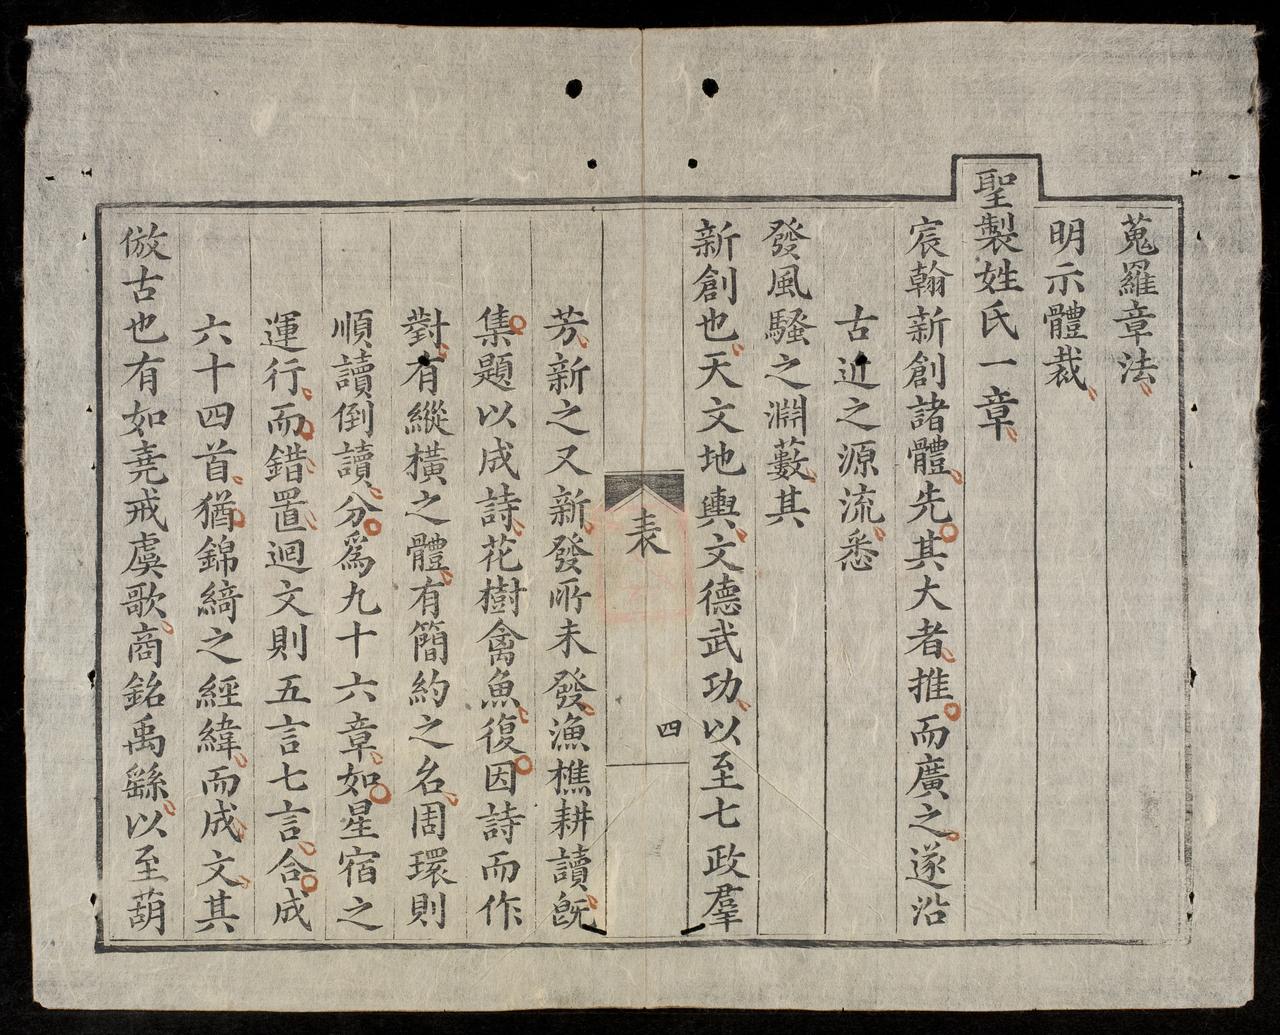 蒐羅章法
明示體裁
聖製姓氏一章
宸翰新創諸體先其大者推而廣之遂沿
古近之源流悉
發風騷之淵藪其
新創也天文地輿文德武功以至七政羣
表
四
芳新之又新發所未發漁樵耕讀旣
集題以成詩花樹禽魚復因詩而作
對有縱橫之體有簡約之名周環則
順讀倒讀分爲九十六章如星宿之
運行而錯置迴文則五言七言合成
六十四首猶錦綺之經緯而成文其
倣古也有如堯戒虞歌商銘禹繇以至葫